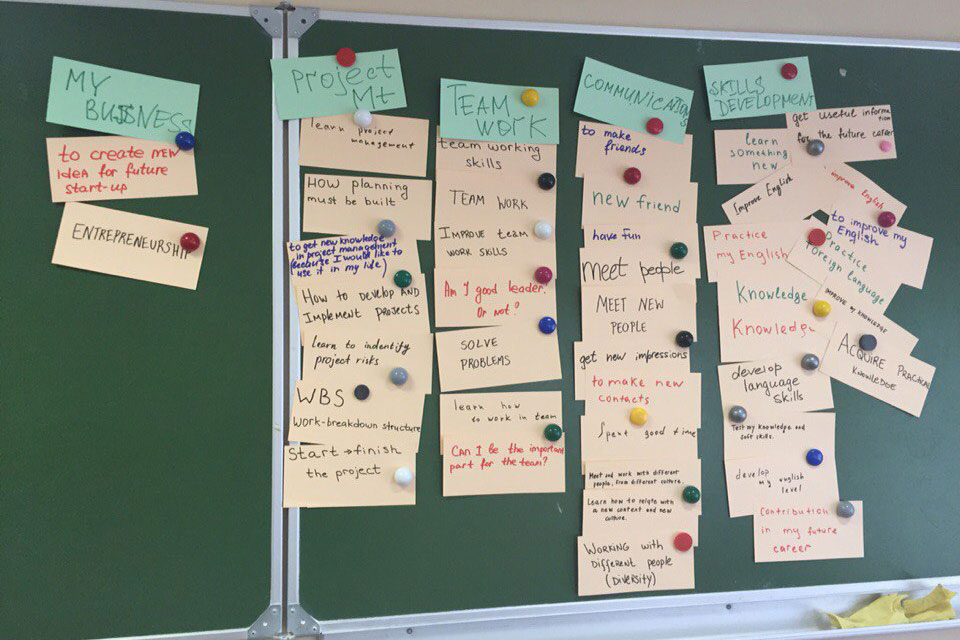 MY
BUSSNESS
to create new
idea for future
start-up
ENTREPRENEURSHIP
Project
Mt
learn project
management
HOW planning
must be built
to get new knowledge
in project management
(because I would like to
use it in my life)
How to develop AND
Implement projects
learn to indentify
project risks
WBS
work-breakdown structure
Start → finish
the project
TEAM
WORK
team working
skills
TEAM WORK
IMPROVE team
WORK SKILLS
Am I good leader.
Or not?
SOLVE
PROBLEMS
learn how
to work in team
CAN I be the important
part for the team?
COMMUNICATIONS
to make
friends
new friend
have fun
meet people
MEET NEW
PEOPLE
get new impressions
to make new
contacts
Spent good time
Meet and work with different
people, from different culture.
Learn how to relate with
a new content and new
culture.
WORKING with
Different people
(Diversity)
SKILLS
DEVELOPMENT
get useful informa
tion
for the future career
learn
something
new
Improve English
improve English
to improve my
English
Practice
my English
Practice
Foreign language
Knowledge
Knowledge
improve my knowledge
ACQUIRE PRACTICAL
KNOWLEDGE
develop
language
skills
Test my knowledge and
soft skills.
develop
my english
level
Contribution
in my future
career